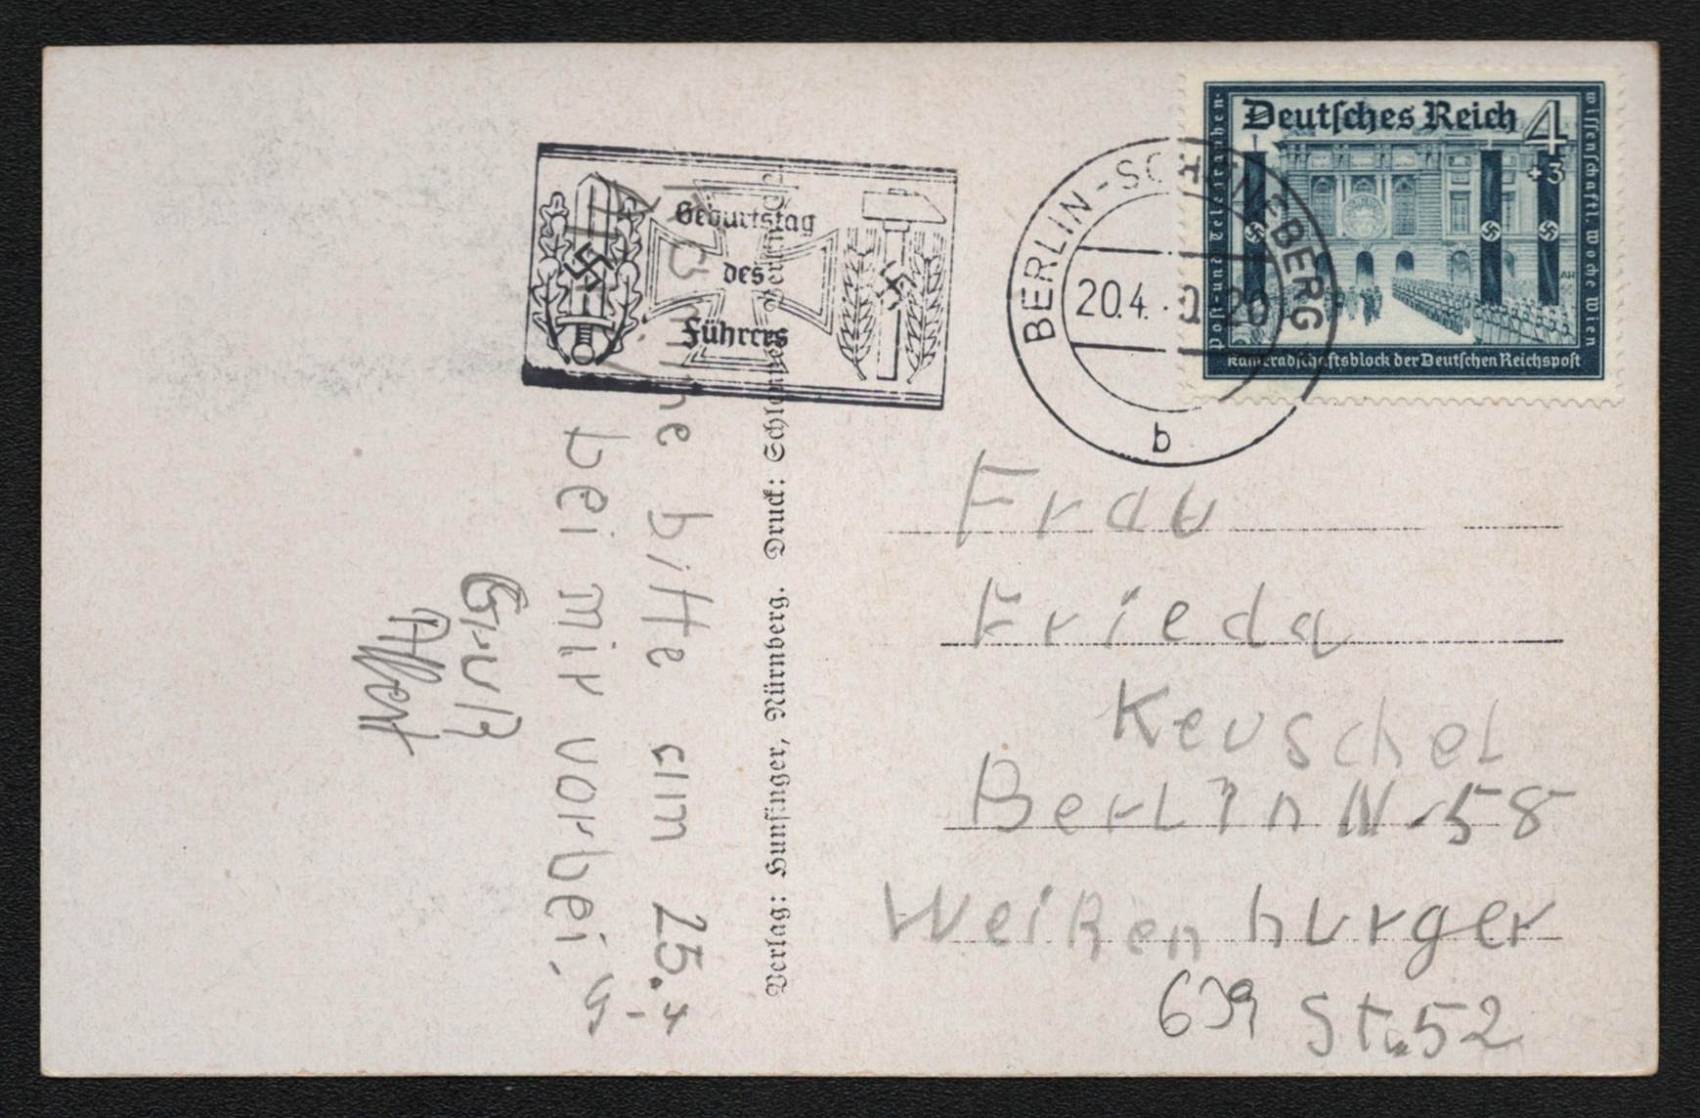 Deutsches Reich 4
+3
Post und Telegraphen-
wissenschaftl. Woche Wien
Kameradschaftsblock der Deutschen Reichspost
BERLIN-SCHÖNEBERG
20.4.
20
b
Geburtstag
des
Führers
Frau
Frieda
Keuschel
Berlin N-58
Weißenburger
St. 52
639
Verlag: Hunsinger, Nürnberg. Druck:
Komme bitte am 25.4
bei mir vorbei.
Gruß
Albert